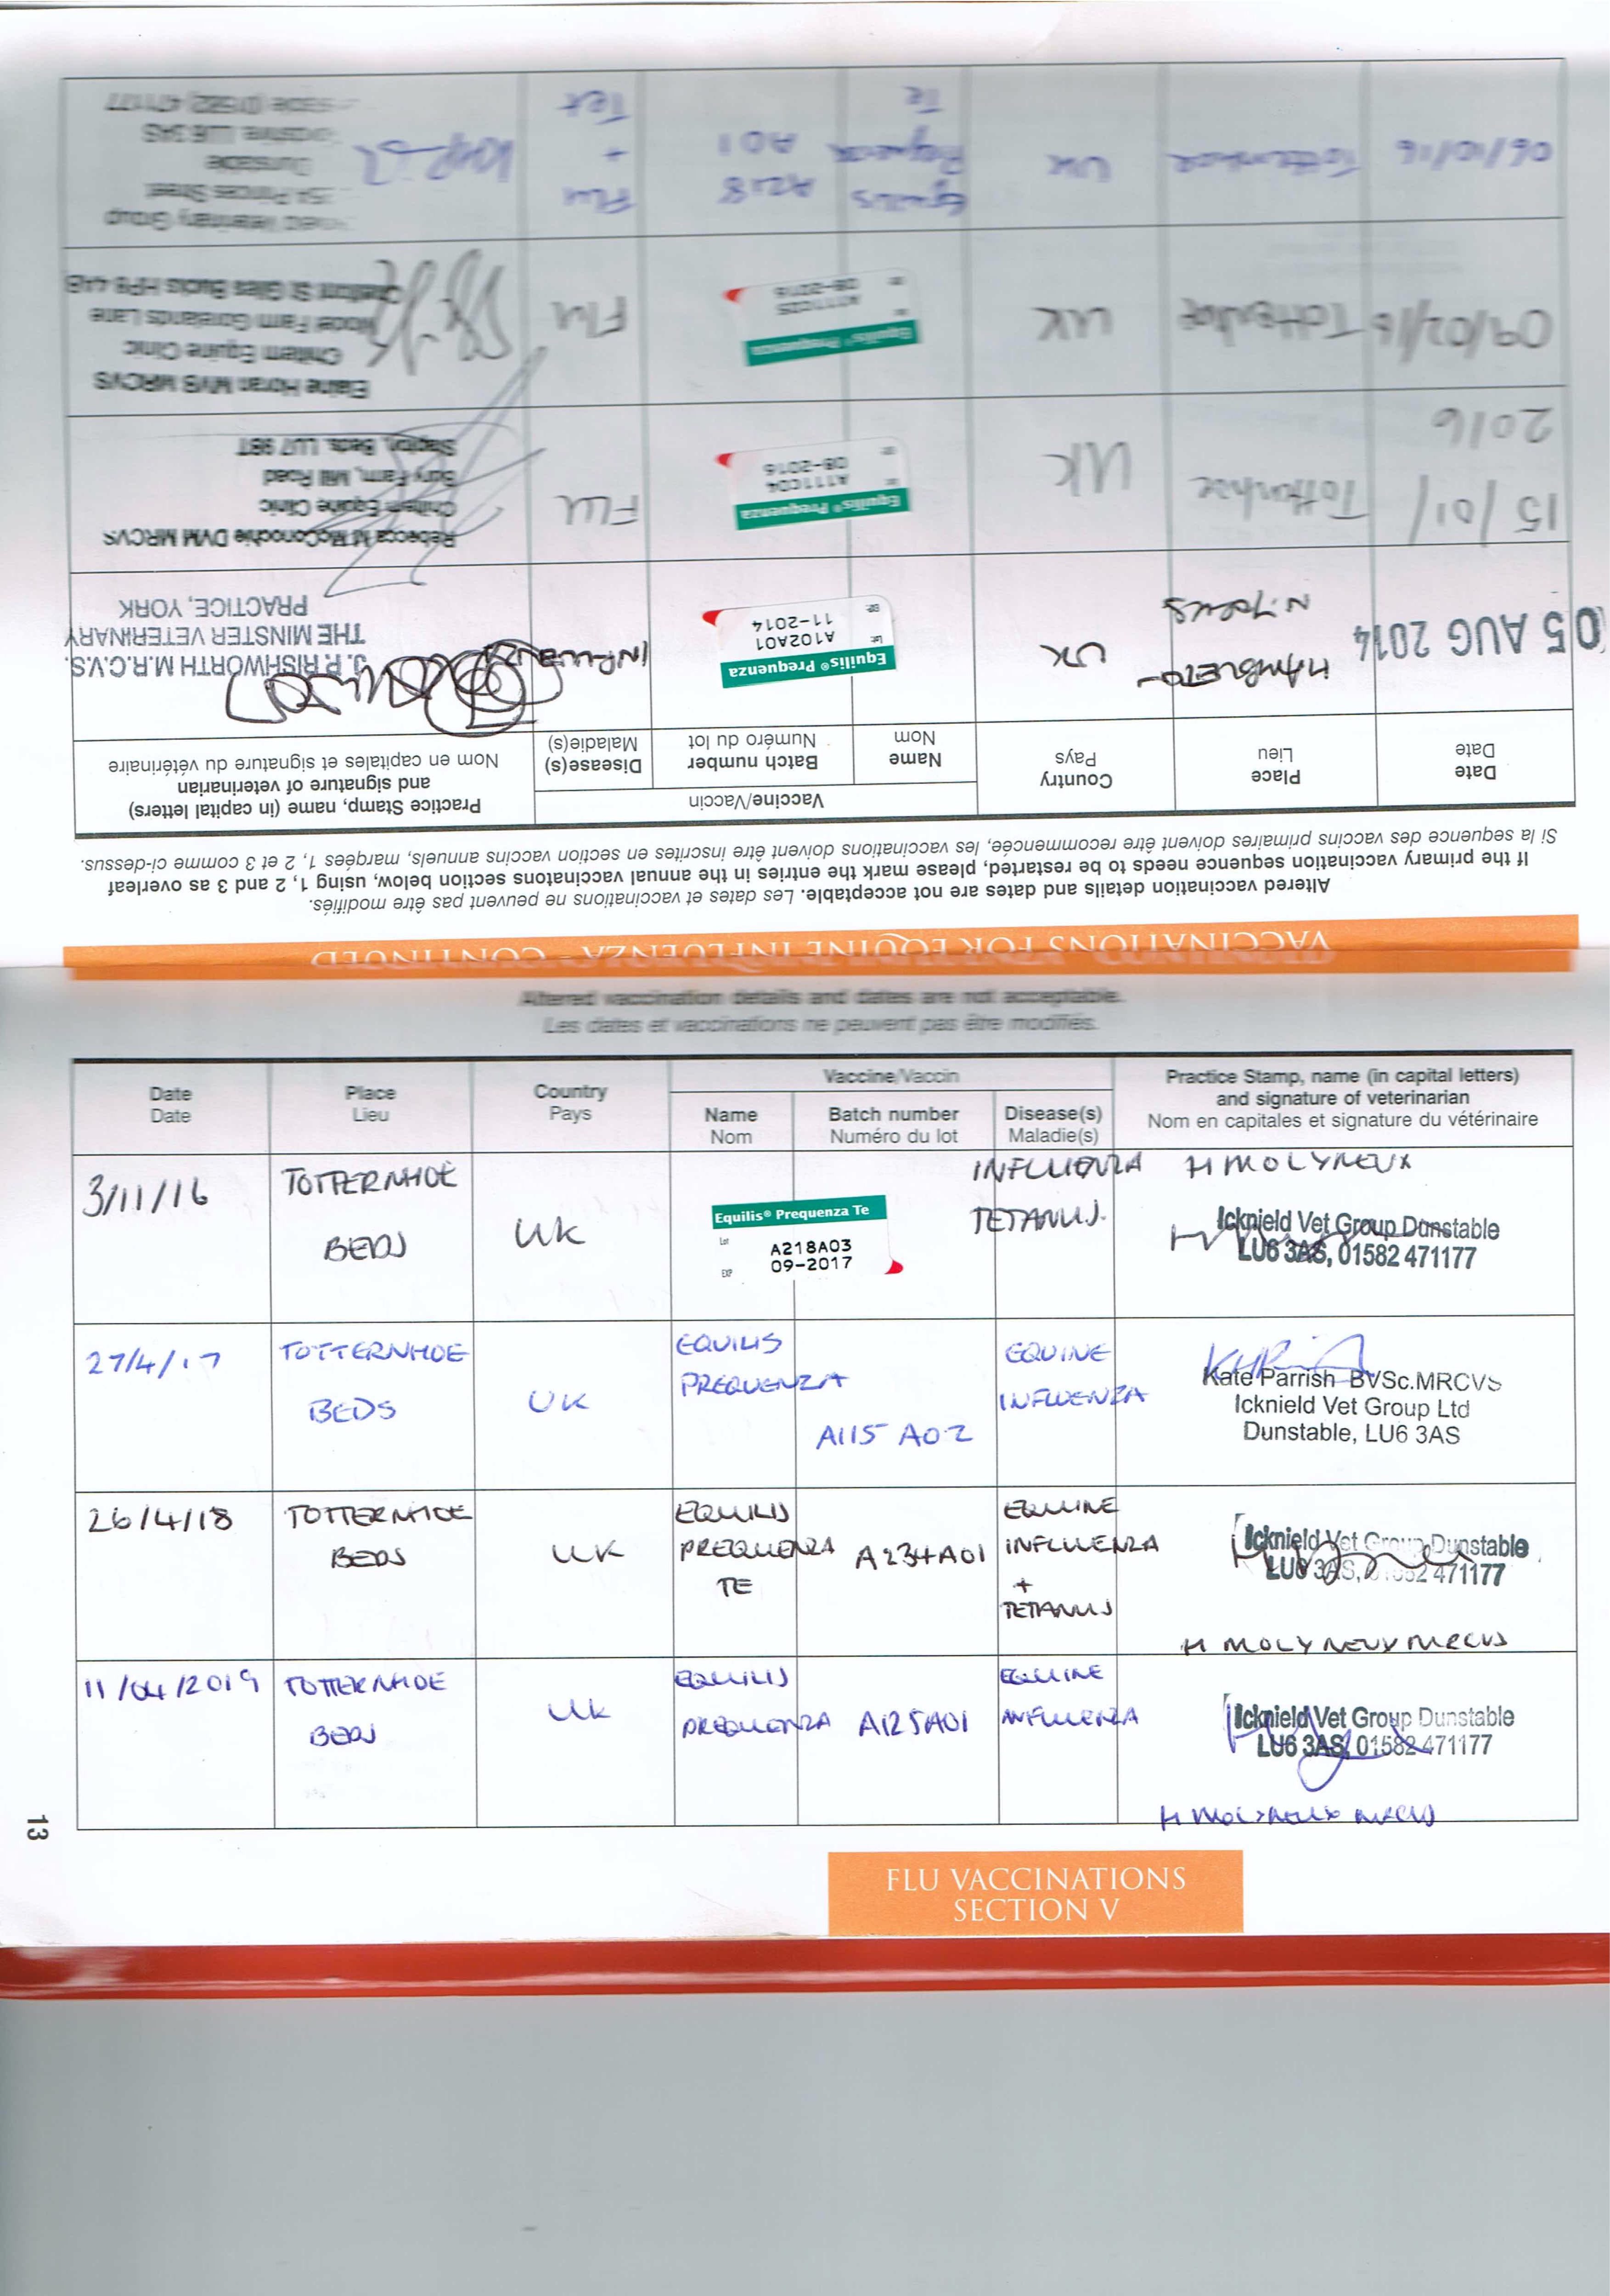 VACCINATIONS FOR EQUINE INFLUENZA - CONTINUED
Altered vaccination details and dates are not acceptable. Les dates et vaccinations ne peuvent pas être modifiés.
If the primary vaccination sequence needs to be restarted, please mark the entries in the annual vaccinatons section below, using 1, 2 and 3 as overleaf
Si la sequence des vaccins primaires doivent être recommencée, les vaccinations doivent être inscrites en section vaccins annuels, margées 1, 2 et 3 comme ci-dessus.
Date
Date
Place
Lieu
Country
Pays
Vaccine/Vaccin
Name
Nom
Batch number
Numéro du lot
Disease(s)
Maladie(s)
Practice Stamp, name (in capital letters)
and signature of veterinarian
Nom en capitales et signature du vétérinaire
05 AUG 2014
HAMBLETO-
UK
Equilis® Prequenza
Lot
A102A01
EXP
11-2014
J. P. RISHWORTH M.R.C.V.S.
THE MINSTER VETERINARY
PRACTICE, YORK
15/01/
2016
Totternhoe
UK
Equilis® Prequenza
A111C04
08-2016
FLU
Rebecca M McConnochie DVM MRCVS
Chiltern Equine Clinic
Bury Farm, Mill Road
Slapton, Beds. LU7 9BT
09/02/16
Totternhoe
UK
Equilis® Prequenza
A111C05
08-2016
Flu
Elaine Horan MVS MRCVS
Chiltern Equine Clinic
Model Farm Gorelands Lane
Chalfont St Giles Bucks HP8 4AB
06/10/16
Totternhoe
UK
Equilis
Te
A218
A01
Flu
+
Tet
Veterinary Group
Princes Street
Dunstable
LU6 3AS
(01582) 471177
Altered vaccination details and dates are not acceptable.
Les dates et vaccinations ne peuvent pas être modifiés.
Date
Date
Place
Lieu
Country
Pays
Vaccine/Vaccin
Name
Nom
Batch number
Numéro du lot
Disease(s)
Maladie(s)
Practice Stamp, name (in capital letters)
and signature of veterinarian
Nom en capitales et signature du vétérinaire
3/11/16
TOTTERNHOE
BEDS
UK
Equilis® Prequenza Te
Lot
A218A03
EXP
09-2017
INFLUENZA
TETANUS.
H MOLYNEUX
Icknield Vet Group Dunstable
LU6 3AS, 01582 471177
27/4/17
TOTTERNHOE
BEDS
UK
EQUILIS
PREQUENZA
A115 A02
EQUINE
INFLUENZA
Kate Parrish BVSc.MRCVS
Icknield Vet Group Ltd
Dunstable, LU6 3AS
26/4/18
TOTTERNHOE
BEDS
UK
EQUILIS
PREQUENZA
TE
A234A01
EQUINE
INFLUENZA
+
TETANUS
Icknield Vet Group Dunstable
LU6 3AS, 01582 471177
H MOLYNEUX MRCVS
11/04/2019
TOTTERNHOE
BEDS
UK
EQUILIS
PREQUENZA
A125A01
EQUINE
INFLUENZA
Icknield Vet Group Dunstable
LU6 3AS, 01582 471177
H MOLYNEUX MRCVS
13
FLU VACCINATIONS
SECTION V